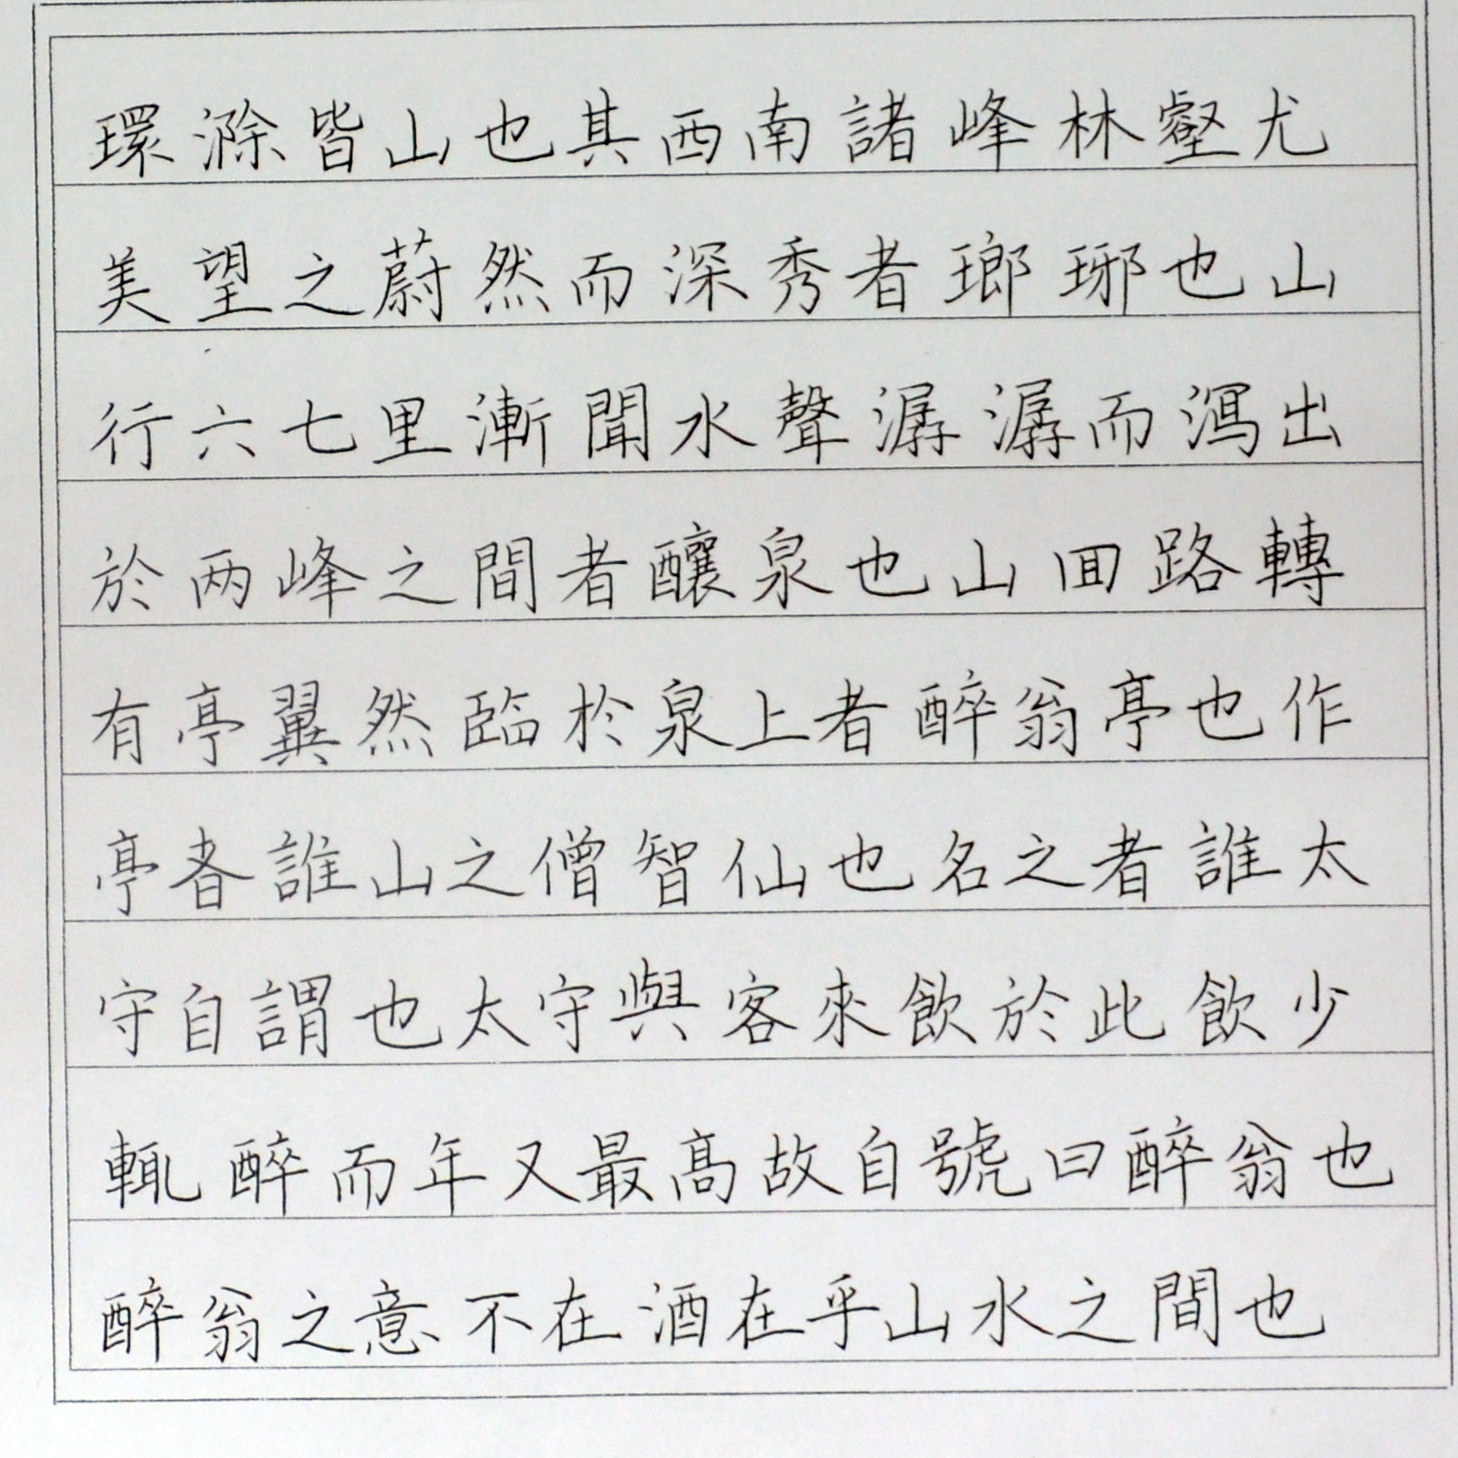 環滁皆山也其西南諸峰林壑尤
美望之蔚然而深秀者瑯琊也山
行六七里漸聞水聲潺潺而瀉出
於两峰之間者釀泉也山回路轉
有亭翼然臨於泉上者醉翁亭也作
亭者誰山之僧智仙也名之者誰太
守自謂也太守與客來飲於此飲少
輒醉而年又最高故自號曰醉翁也
醉翁之意不在酒在乎山水之間也